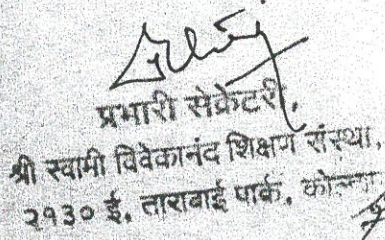 प्रभारी सेक्रेटरी,
श्री स्वामी विवेकानंद शिक्षण संस्था,
२१३० ई, ताराबाई पार्क,